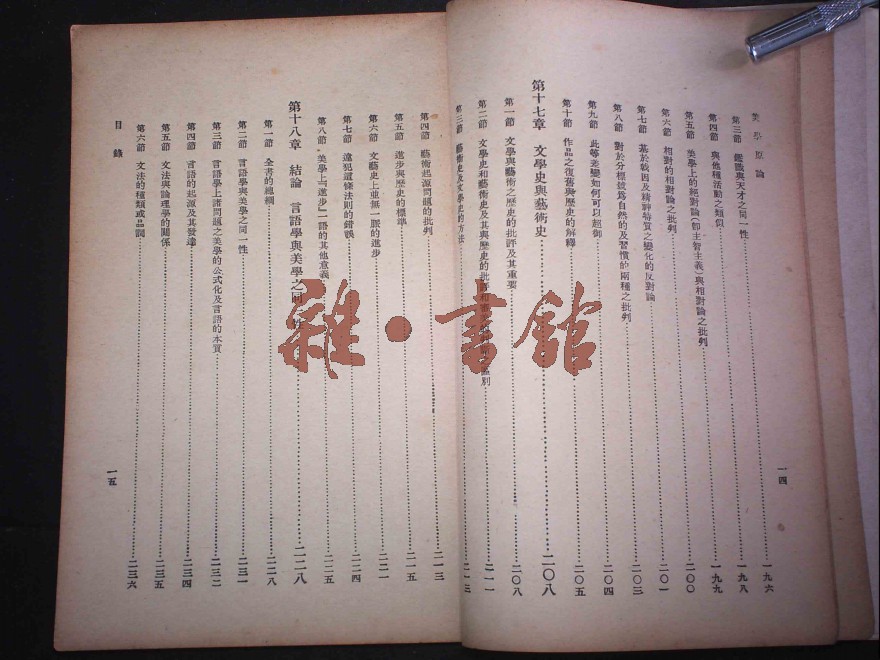 美學原論
第三節 鑑識與天才之同一性……一九六
第四節 與他種活動之類似……一九八
第五節 美學上的絕對論(卽主智主義)與相對論之批判……一九九
第六節 相對的相對論之批判……二〇〇
第七節 基於戟因及精神特質之變化的反對論……二〇一
第八節 對於分標號爲自然的及習慣的兩種之批判……二〇三
第九節 此等差變如何可以超御……二〇四
第十節 作品之復舊與歷史的解釋……二〇五
第十七章 文學史與藝術史……二〇八
第一節 文學與藝術之歷史的批評及其重要……二〇八
第二節 文學史和藝術史及其與歷史的批評和……別……二一一
第三節 藝術史及文學史的方法……二一二
一四
第四節 藝術起源問題的批判……二一三
第五節 進步與歷史的標準……二一五
第六節 文藝史上並無一脈的進步……二二一
第七節 違犯這條法則的錯誤……二二四
第八節 美學上「進步」一語的其他意義……二二五
第十八章 結論 言語學與美學之同一性……二二八
第一節 全書的總綱……二二八
第二節 言語學與美學之同一性……二三一
第三節 言語學上諸問題之美學的公式化及言語的本質……二三二
第四節 言語的起源及其發達……二三四
第五節 文法與論理學的關係……二三五
第六節 文法的種類或品詞……二三六
目錄
一五
雜·書館